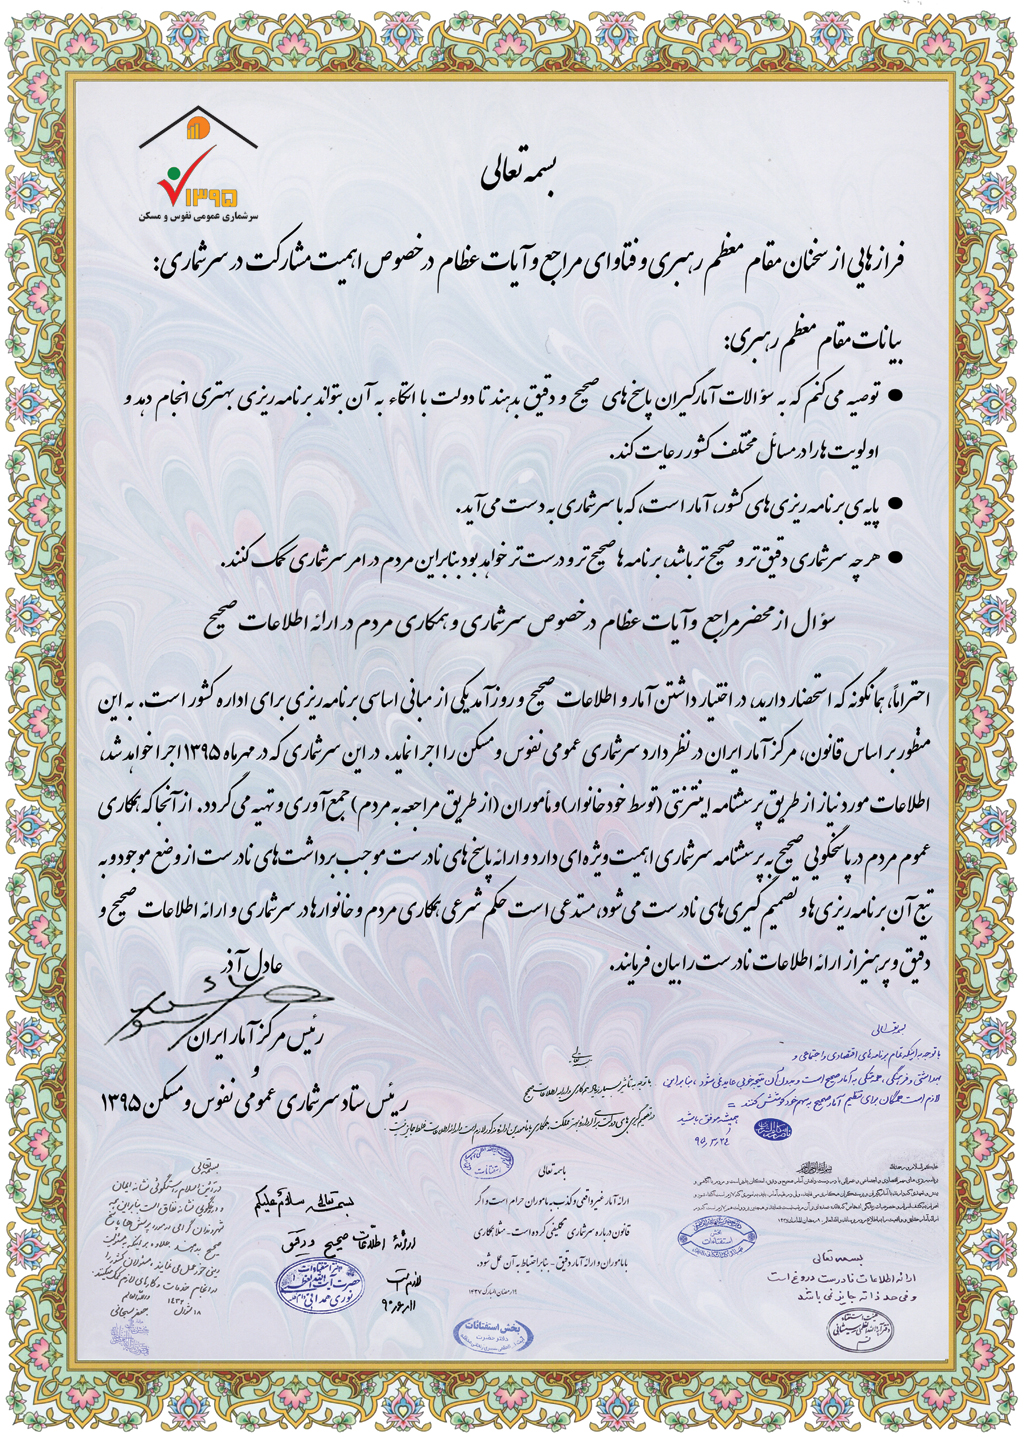 ۱۳۹۵
سرشماری عمومی نفوس و مسکن
بسمه تعالی
فرازهایی از سخنان مقام معظم رهبری و فتاوای مراجع و آیات عظام در خصوص اهمیت مشارکت در سرشماری:
بیانات مقام معظم رهبری:
● توصیه می‌کنم که به سؤالات آمارگیران پاسخ‌های صحیح و دقیق بدهند تا دولت با اتکاء به آن بتواند برنامه‌ریزی بهتری انجام دهد و
اولویت‌ها را در مسائل مختلف کشور رعایت کند.
● پایه‌ی برنامه‌ریزی‌های کشور، آمار است، که با سرشماری به دست می‌آید.
● هر چه سرشماری دقیق‌تر و صحیح‌تر باشد، برنامه‌ها صحیح‌تر و درست‌تر خواهد بود بنابراین مردم در امر سرشماری کمک کنند.
سؤال از محضر مراجع و آیات عظام در خصوص سرشماری و همکاری مردم در ارائه اطلاعات صحیح
احتراماً، همانگونه که استحضار دارید، در اختیار داشتن آمار و اطلاعات صحیح و روزآمد یکی از مبانی اساسی برنامه‌ریزی برای اداره کشور است. به این
منظور بر اساس قانون، مرکز آمار ایران در نظر دارد سرشماری عمومی نفوس و مسکن را اجرا نماید. در این سرشماری که در مهرماه ۱۳۹۵ اجرا خواهد شد،
اطلاعات مورد نیاز از طریق پرسشنامه اینترنتی (توسط خود خانوار) و مأموران (از طریق مراجعه به مردم) جمع‌آوری و تهیه می‌گردد. از آنجا که همکاری
عموم مردم در پاسخگویی صحیح به پرسشنامه سرشماری اهمیت ویژه‌ای دارد و ارائه پاسخ‌های نادرست موجب برداشت‌های نادرست از وضع موجود و به
تبع آن برنامه‌ریزی‌ها و تصمیم‌گیری‌های نادرست می‌شود، مستدعی است حکم شرعی همکاری مردم و خانوارها در سرشماری و ارائه اطلاعات صحیح و
دقیق و پرهیز از ارائه اطلاعات نادرست را بیان فرمایند.
عادل آذر
رئیس مرکز آمار ایران
و
رئیس ستاد سرشماری عمومی نفوس و مسکن ۱۳۹۵
بسمه تعالی
با توجه به اینکه تمام برنامه‌های اقتصادی و اجتماعی و
بهداشتی و فرهنگی، همه متکی به آمار صحیح است و بدون آن نتیجه خوبی عاید نمی‌شود، بنابراین
لازم است همگان برای تنظیم آمار صحیح به سهم خود کوشش کنند.
همیشه موفق باشید
باسمه تعالی
ارائه آمار غیر واقعی و کذب به ماموران حرام است و اگر
قانون درباره سرشماری تکلیفی کرده است - مثلا همکاری
با ماموران و ارائه آمار دقیق - بنابر احتیاط به آن عمل شود.
۱۱ رمضان المبارک ۱۴۳۷
بخش استفتائات
بسمه تعالی سلام علیکم
ارائهٔ اطلاعات صحیح و دقیق
لازم است
دفتر استفتاءات
حضرت آیت الله العظمی
نوری همدانی
بسمه تعالی
ارائه اطلاعات نادرست دروغ است
و فی حد ذاته جایز نمی باشد
بسمه تعالی
جعفر سبحانی